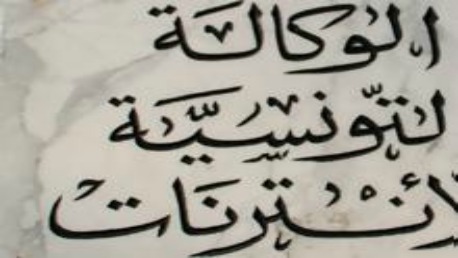 الوكالة
لتّونسيّة
لأنترنات